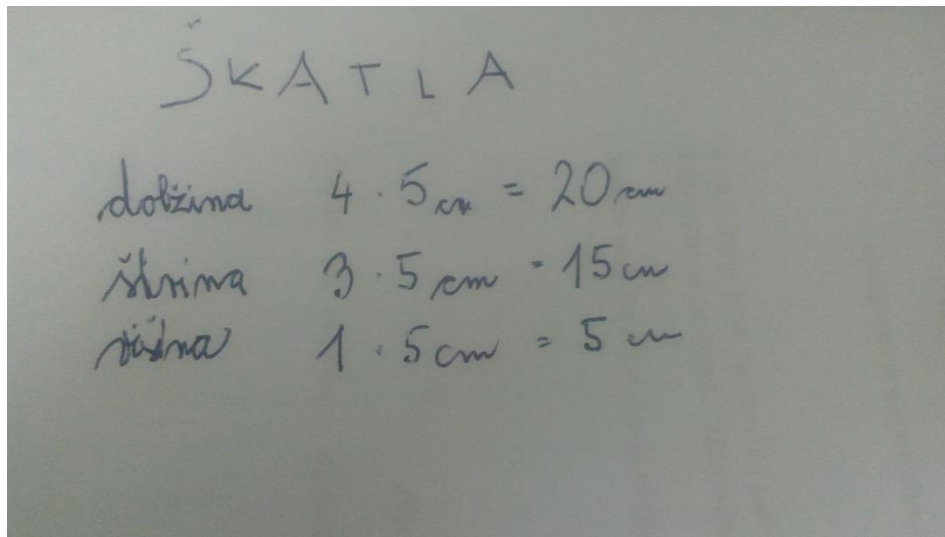 ŠKATLA
dolžina 4 · 5 cm = 20 cm
širina 3 · 5 cm = 15 cm
višina 1 · 5 cm = 5 cm